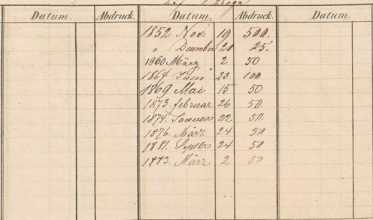 Datum. Abdruck. Datum. Abdruck. Datum.
1852 Nov. 19 500.
" Decembr 20 25.
1860 März 2 50
1864. Juni 20 100
1869 Mai 15 50
1873. februar 26 50.
1874. Januar 22 50.
1876. März 24 50
1881. Septbr 24 50
1883. März 2 50